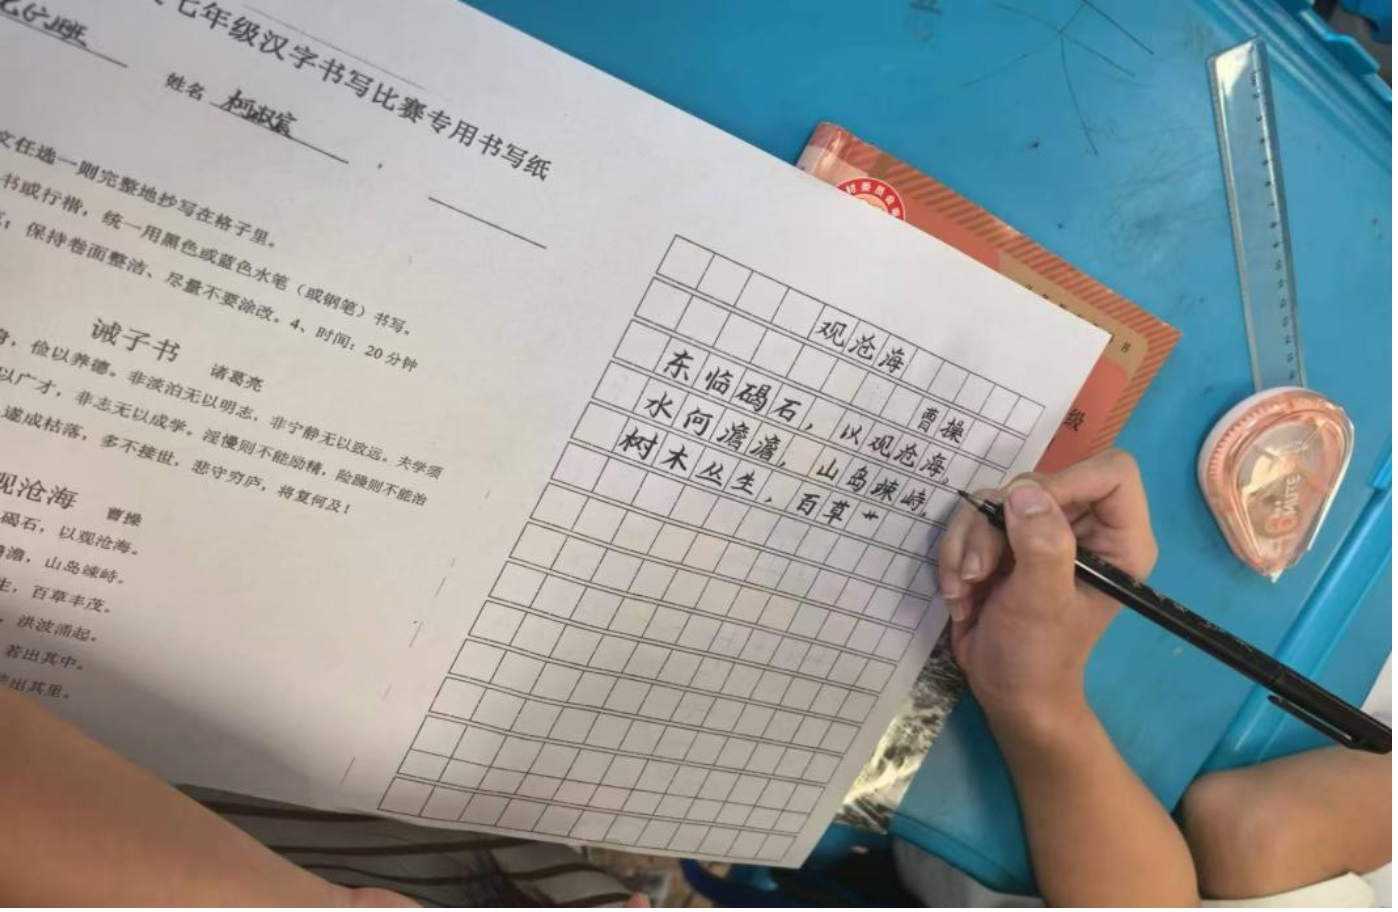 七年级汉字书写比赛专用书写纸
班
姓名
文任选一则完整地抄写在格子里。
书或行楷，统一用黑色或蓝色水笔（或钢笔）书写。
；保持卷面整洁、尽量不要涂改。4、时间：20分钟
诫子书 诸葛亮
身，俭以养德。非淡泊无以明志，非宁静无以致远。夫学须
以广才，非志无以成学。淫慢则不能励精，险躁则不能治
遂成枯落，多不接世，悲守穷庐，将复何及！
观沧海 曹操
碣石，以观沧海。
澹，山岛竦峙。
生，百草丰茂。
，洪波涌起。
若出其中。
出其里。
观沧海
曹操
东临碣石，以观沧海，
水何澹澹，山岛竦峙，
树木丛生，百草
级
MUTE